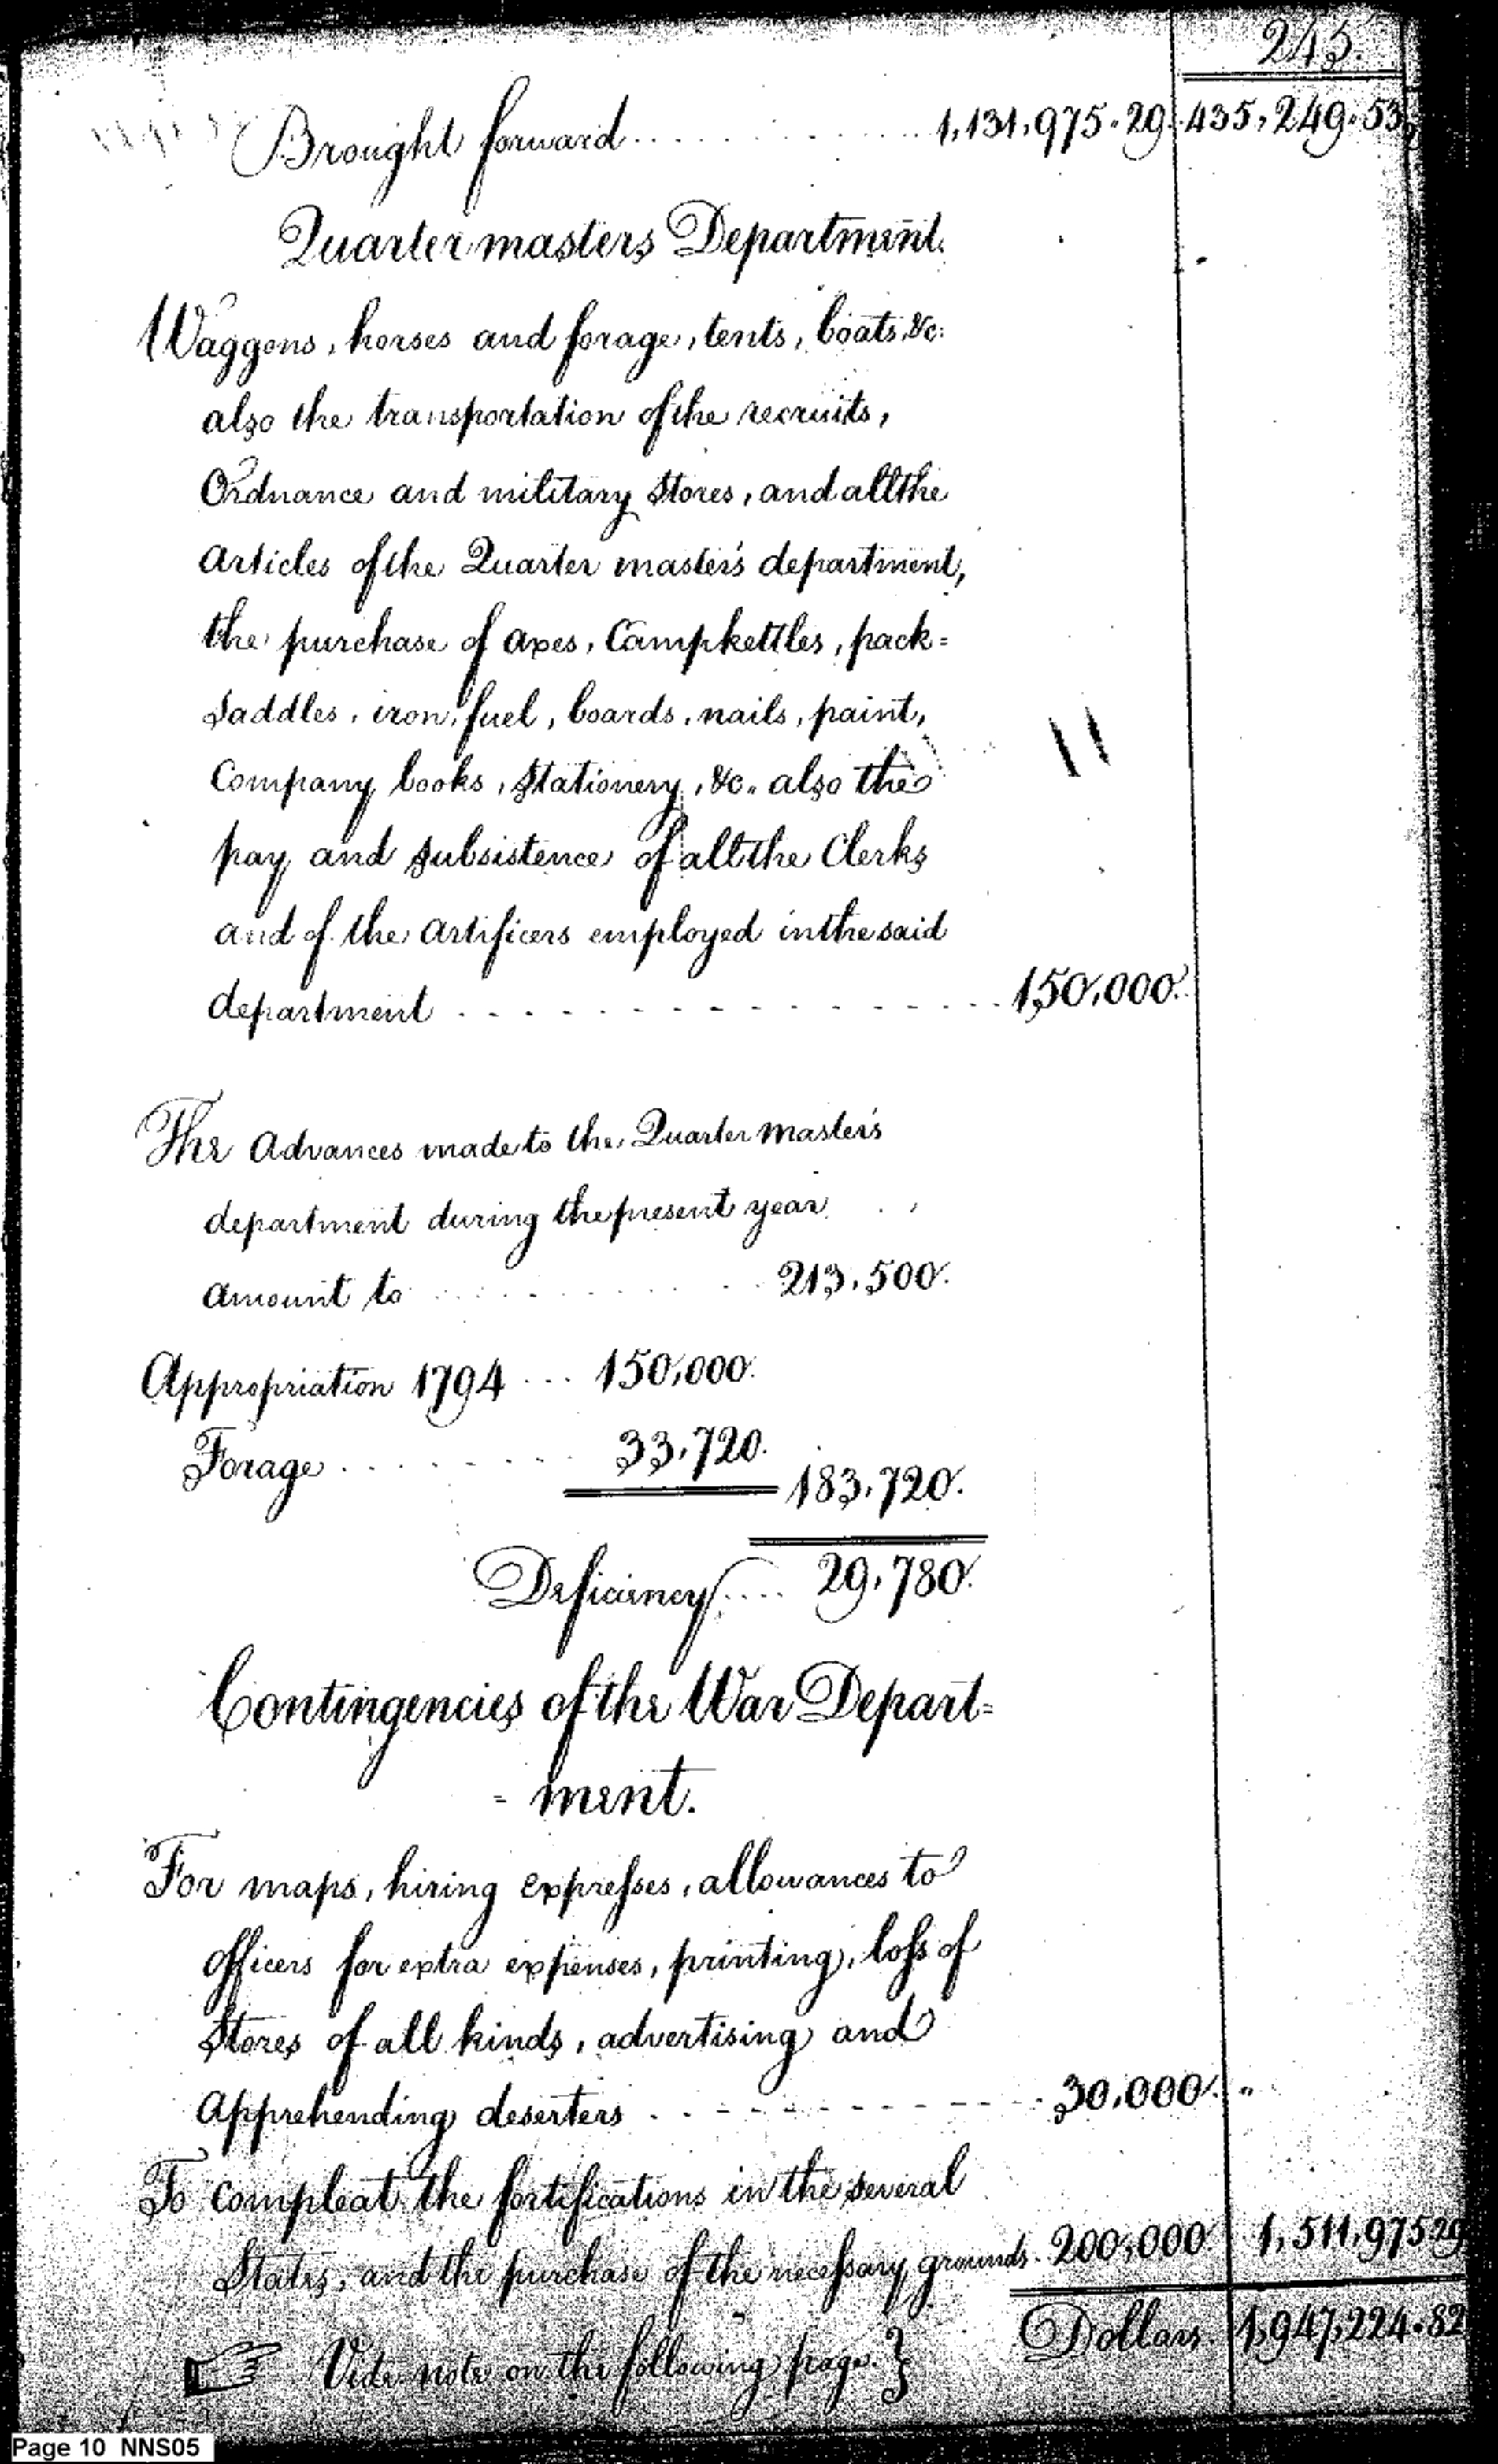 245.
Brought forward . . . . . . . . . . . . 1,131,975.29. 435,249.53
Quarter masters Department.
Waggons, horses and forage, tents, boats, &c.
also the transportation of the recruits,
Ordnance and military Stores, and all the
articles of the Quarter master's department,
the purchase of axes, Campkettles, pack=
Saddles, iron, fuel, boards, nails, paint,
Company books, Stationery, &c. also the
pay and subsistence of all the Clerks
and of the artificers employed in the said
department . . . . . . . . . . . . . . . . 150,000.
The Advances made to the Quarter master's
department during the present year
amount to . . . . . . . . . . 213,500.
Appropriation 1794 . . . 150,000.
Forage . . . . . . . . 33,720.
183,720.
Deficiency . . . . 29,780.
Contingencies of the War Depart=
= ment.
For maps, hiring expresses, allowances to
officers for extra expenses, printing, loss of
Stores of all kinds, advertising and
apprehending deserters . . . . . . . . . . . . 30,000. "
To compleat the fortifications in the several
States, and the purchase of the necessary grounds. 200,000 1,511,975 29
Dollars. 1,947,224.82
Vide note on the following page. }
Page 10 NNS05